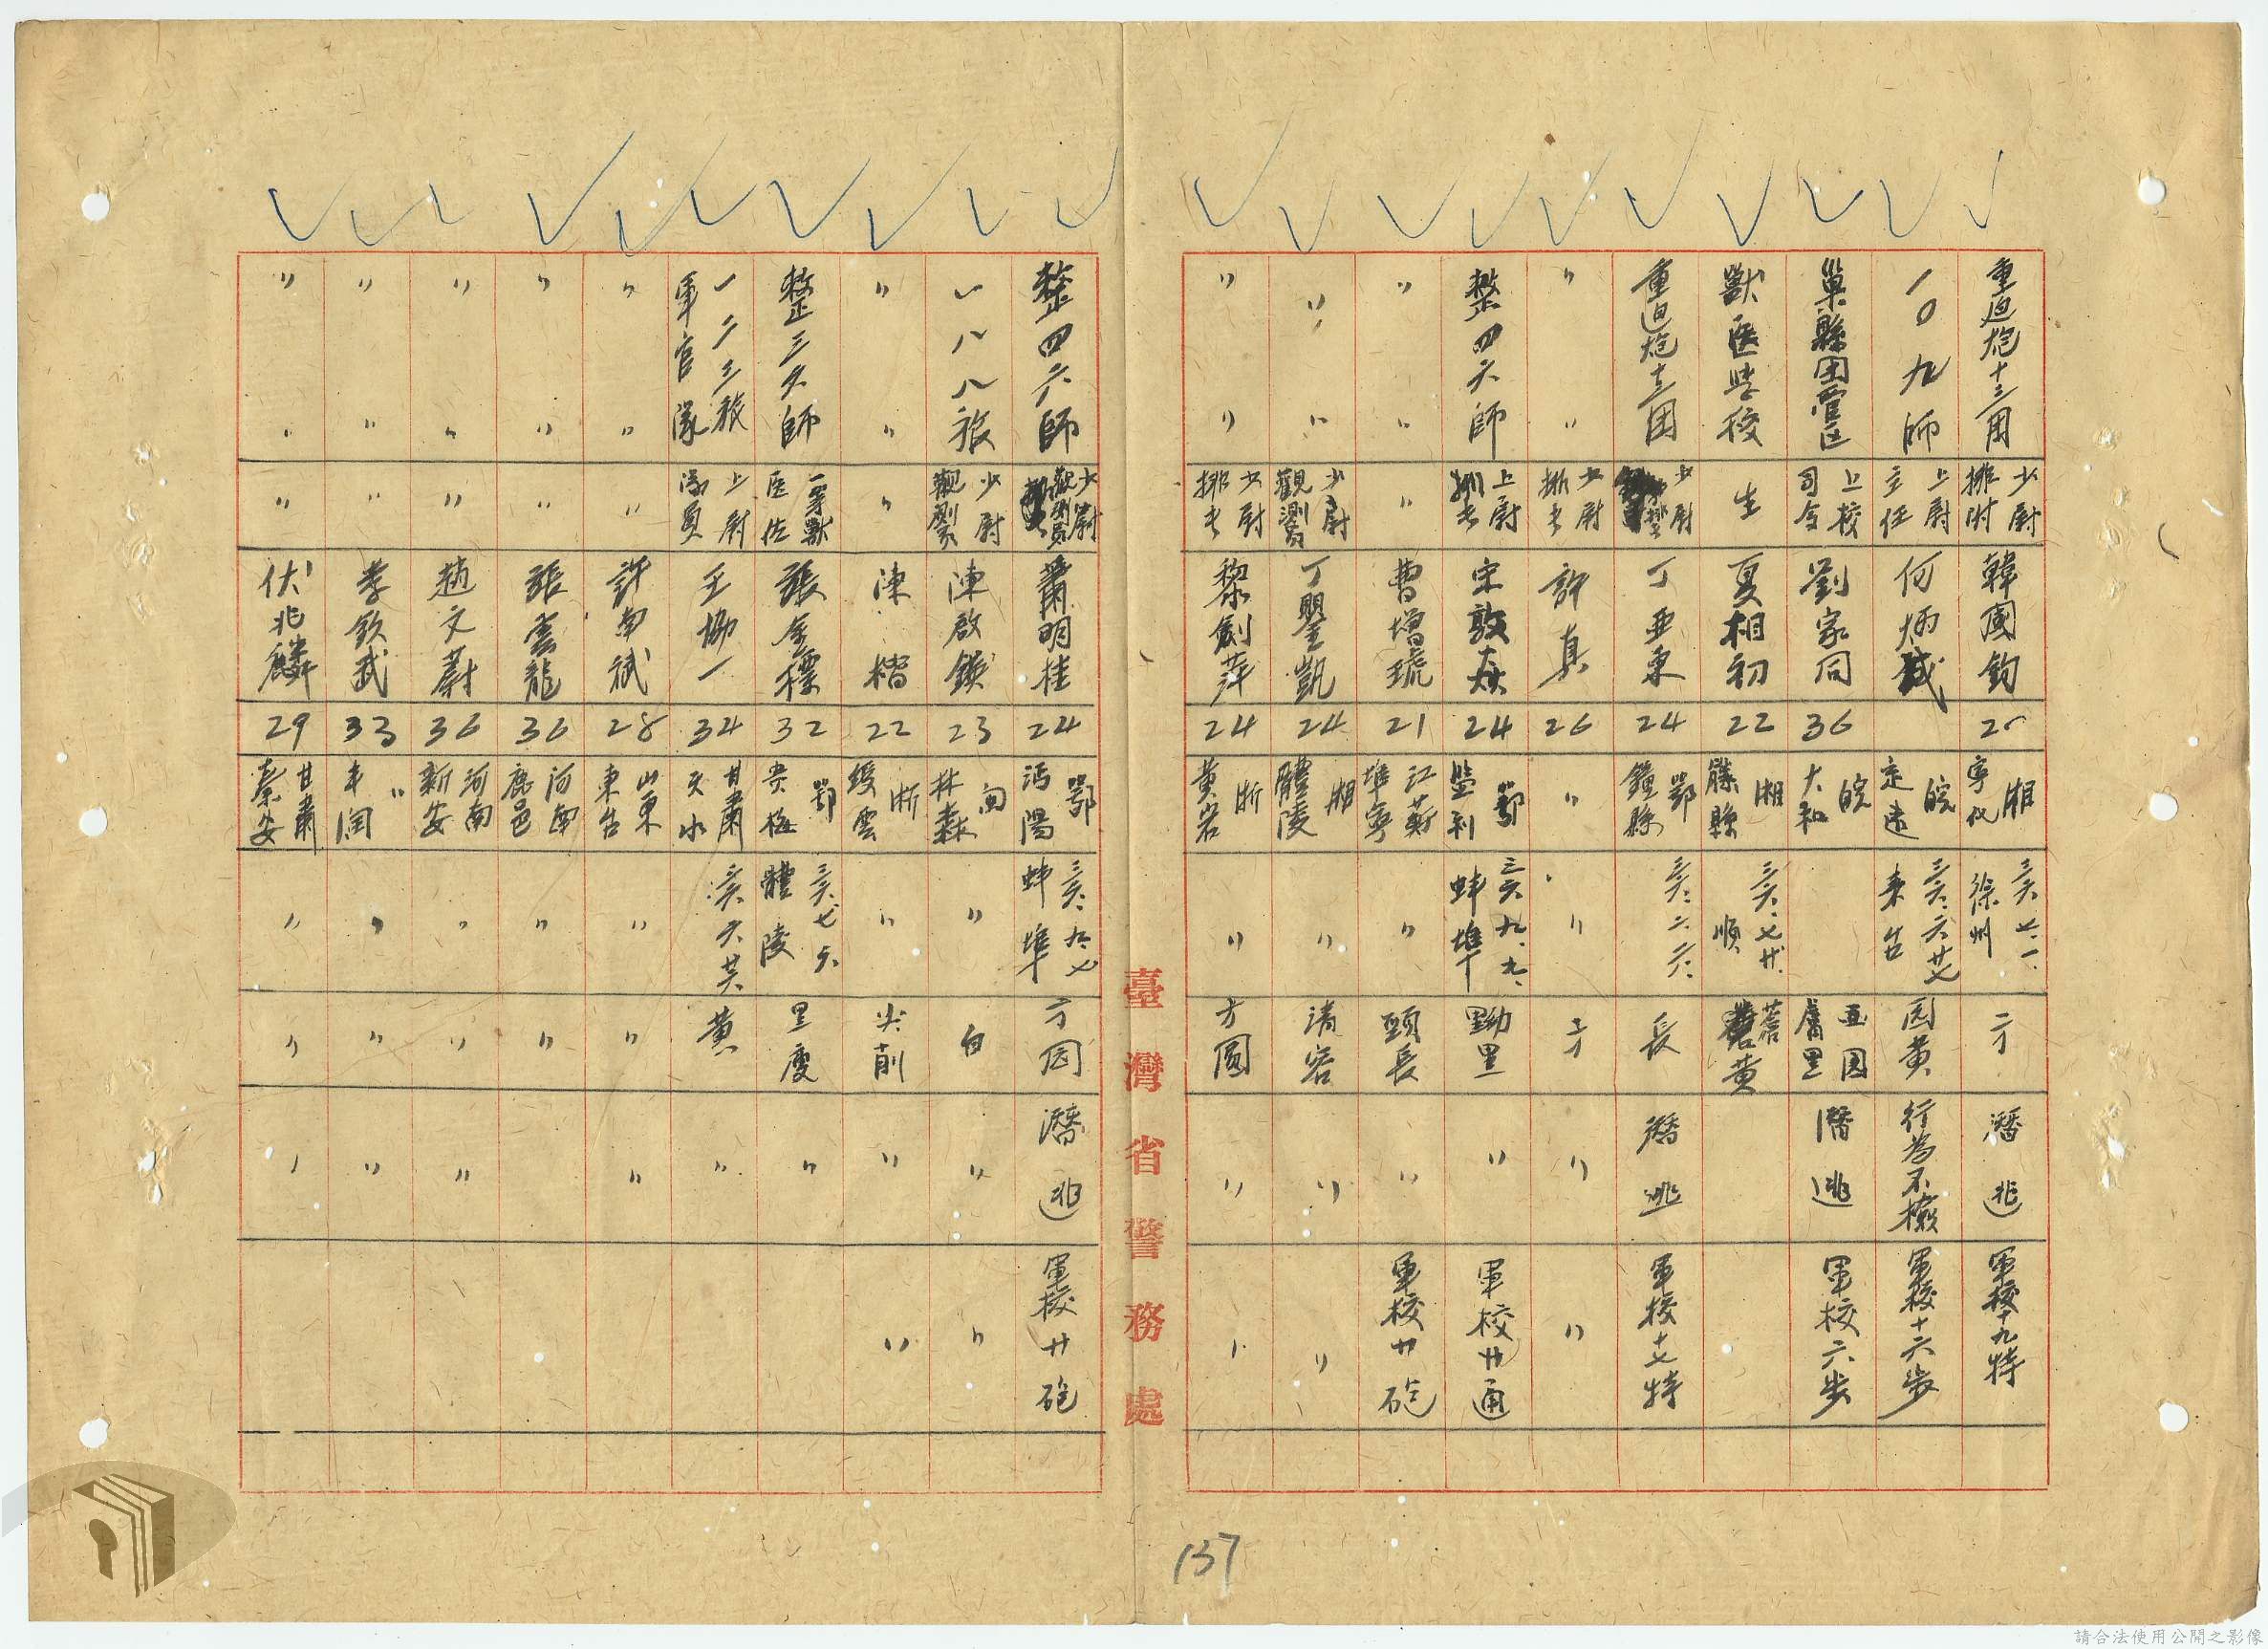 重迫炮十三團 少尉排附 韓國鈞 寧 湘 三六.七.一. 徐州 方 潛逃 軍校十九特
一〇九師 上尉主任 何炳 定遠 皖 三六.六.廿七 東台 圆黃 行為不檢 軍校十六步
巢縣团管区 上校司令 劉家同 36 太和 皖 潛逃 軍校六步
獸医学校 生 夏相初 22 湘 三六.七.廿. 蒼黃
重迫炮十三团 少尉 丁亜東 24 鄂 鍾縣 三六.二.六. 長 潛逃 軍校十七特
〃 〃 少尉排長 許真 26 〃 〃 〃 〃
整四六師 上尉排長 宋敦 24 鄂 監利 三六.九.九. 蚌埠 黝黑 〃 軍校廿通
〃 〃 〃 曹增琉 21 江蘇 阜寧 〃 頭長 〃 軍校廿砲
〃 〃 少尉觀測員 丁聖凱 24 湘 醴陵 〃 清容 〃 〃
〃 〃 少尉排長 黎劍萍 24 浙 黃岩 〃 方圓 〃 〃
臺灣省警務處
整四六師 少尉觀測員 蕭明桂 24 鄂 沔陽 三六.九.七 蚌埠 方园 潛逃 軍校廿砲
一八八旅 少尉觀測員 陳啟鎖 23 林森 〃 白 〃 〃
〃 〃 〃 陳楷 22 浙 縉雲 〃 尖削 〃 〃
整三 師 一等獸医佐 張金標 32 鄂 黃梅 三六.七.六. 醴陵 黑瘦 〃
一二三旅軍官隊 上尉隊員 王協一 34 甘肅 天水 三六.六.廿六 黃 〃
〃 〃 〃 許南斌 28 山東 東台 〃 〃 〃
〃 〃 〃 張雲龍 36 河南 鹿邑 〃 〃
〃 〃 〃 趙文蔚 36 河南 新安 〃 〃 〃
〃 〃 〃 李欽武 33 〃 〃 〃 〃
〃 〃 〃 伏兆麟 29 甘肅 秦安 〃 〃 〃
137
請合法使用公開之影像